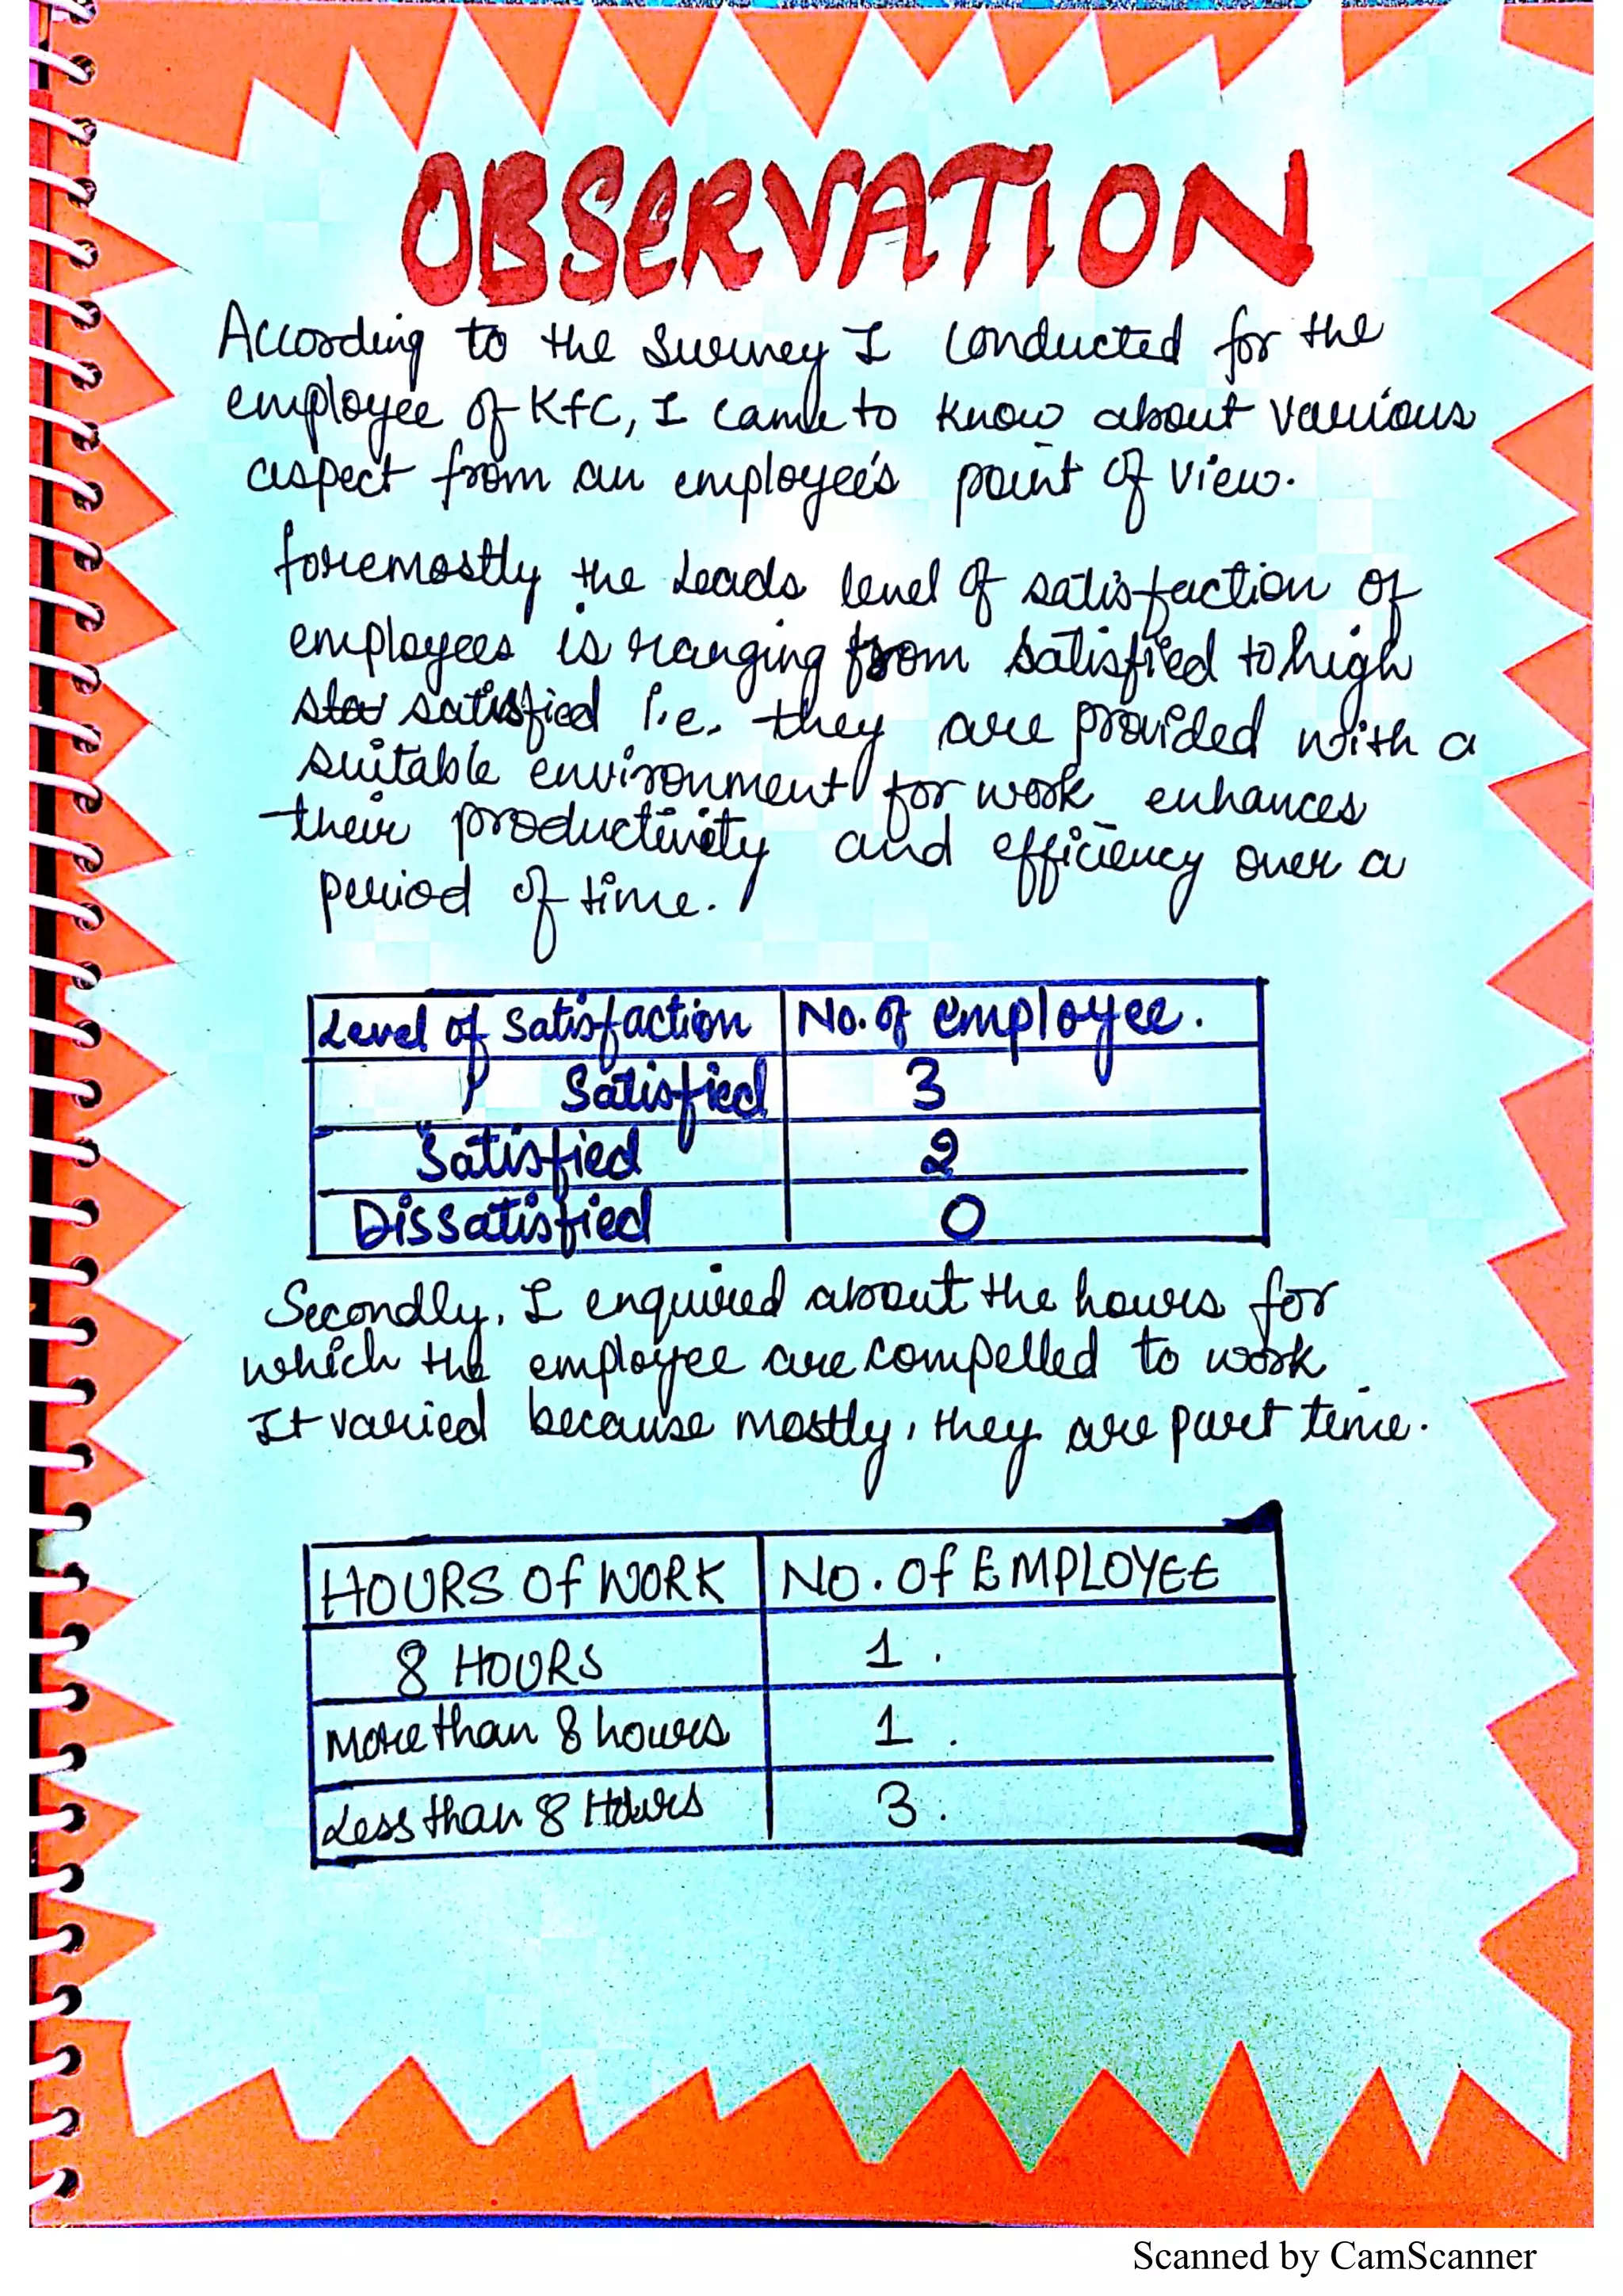 OBSERVATION
According to the survey I conducted for the
employee of KFC, I came to know about various
aspect from an employee's point of view.
foremostly the Leads level of satisfaction of
employees is ranging from satisfied to high
sta satisfied i.e. they are provided with a
suitable environment for work enhances
their productivity and efficiency over a
period of time.
Level of Satisfaction No. of employee.
Satisfied 3
Satisfied 2
Dissatisfied 0
Secondly, I enquired about the hours for
which the employee are compelled to work
It varied because mostly, they are part time.
HOURS Of WORK NO. Of EMPLOYEE
8 HOURS 1.
More than 8 hours 1.
Less than 8 Hours 3.
Scanned by CamScanner